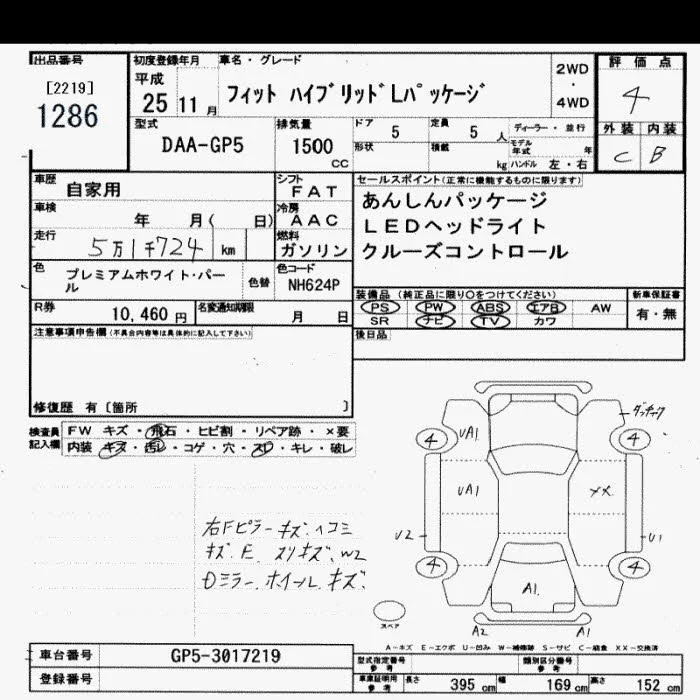 出品番号
[2219]
1286
初度登録年月
平成
25 11 月
車名・グレード
フィット ハイブリッドLパッケージ
2WD
・
4WD
評価点
4
外装 内装
C B
型式
DAA-GP5
排気量
1500
CC
ドア 5
形状
定員 5 人
積載 kg
ディーラー・並行
モデル年式 年
ハンドル 左・右
車歴 自家用
シフト
FAT
車検 年 月( 日)
冷房
AAC
走行 5万1千724 km
燃料
ガソリン
色 プレミアムホワイト・パール
色替
色コード
NH624P
R券 10,460 円
名変通知期限 月 日
セールスポイント(正常に機能するものに限ります)
あんしんパッケージ
LEDヘッドライト
クルーズコントロール
装備品(純正品に限り○をつけてください)
PS PW ABS エアB AW
SR ナビ TV カワ
新車保証書
有・無
後日品
注意事項申告欄(不具合内容等は具体的に記入して下さい)
修復歴 有〔箇所 〕
検査員記入欄
FW キズ・飛石・ヒビ割・リペア跡・×要
内装 キズ・汚レ・コゲ・穴・スレ・キレ・破レ
右Fピラーキズ、ヘコミ
キズ、E、スリキズ、W2
Dミラー、ホイールキズ
4
UA1
4
UA1
XX
U2
U1
4
4
A1
スペア
A2
A1
A-キズ E-エクボ U-凹み W-補修跡 S-サビ C-腐食 XX-交換済
車台番号 GP5-3017219
登録番号
型式指定番号
参考
類別区分番号
参考
車庫証明用
参考
長さ 395 cm 幅 169 cm 高さ 152 cm